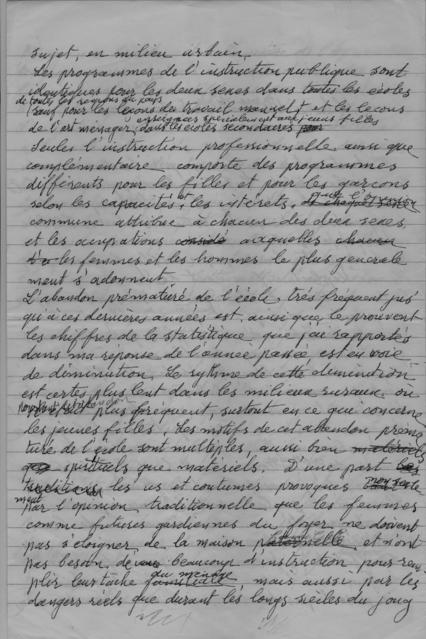 sujet, en milieu urbain.
Les programmes de l'instruction publique sont
identiques pour les deux sexes dans toutes les écoles
de toutes les régions du pays
sauf pour les leçons du travail manuel et les leçons
enseignées spécialement aux jeunes filles
de l'art ménager, dans les écoles secondaires pour
Seules l'instruction professionnelle ainsi que
complémentaire comporte des programmes
différents pour les filles et pour les garçons
selon les capacités et les intérêts,
commune attribue à chacun des deux sexes,
et les occupations auxquelles chacun
les femmes et les hommes le plus générale
ment s'adonnent.
L'abandon prématuré de l'école, très fréquent jus
qu'à ces dernières années est, ainsi que le prouvent
les chiffres de la statistique, que j'ai rapportés
dans ma réponse de l'année passée, est en voie
de diminution. Le rythme de cette diminution
est certes plus lent dans les milieux ruraux, ou
plus fréquent, surtout en ce que concerne
les jeunes filles. Les motifs de cet abandon préma
turé de l'école sont multiples, aussi bien matériels
que spirituels que matériels. D'une part les
traditions les us et coutumes provoqués
par l'opinion traditionnelle que les femmes
comme futures gardiennes du foyer ne doivent
pas s'éloigner de la maison paternelle et n'ont
pas besoin de beaucoup d'instruction pour rem
du ménage
plir leur tâche familiale, mais aussi par les
dangers réels que durant les longs siècles du joug